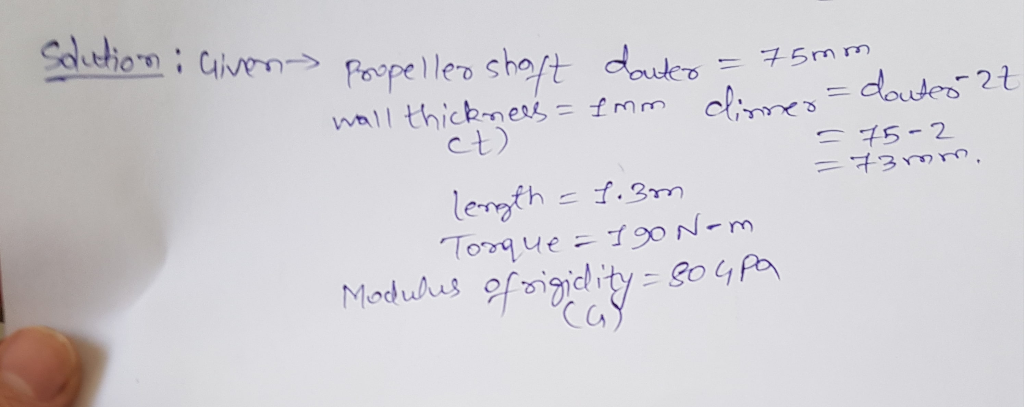 Solution : Given → Propeller shaft douter = 75mm
wall thickness = 1mm dinner = douter - 2t
(t)
= 75-2
= 73mm.
length = 1.3m
Torque = 190 N-m
Modulus of rigidity = 80 GPa
(G)